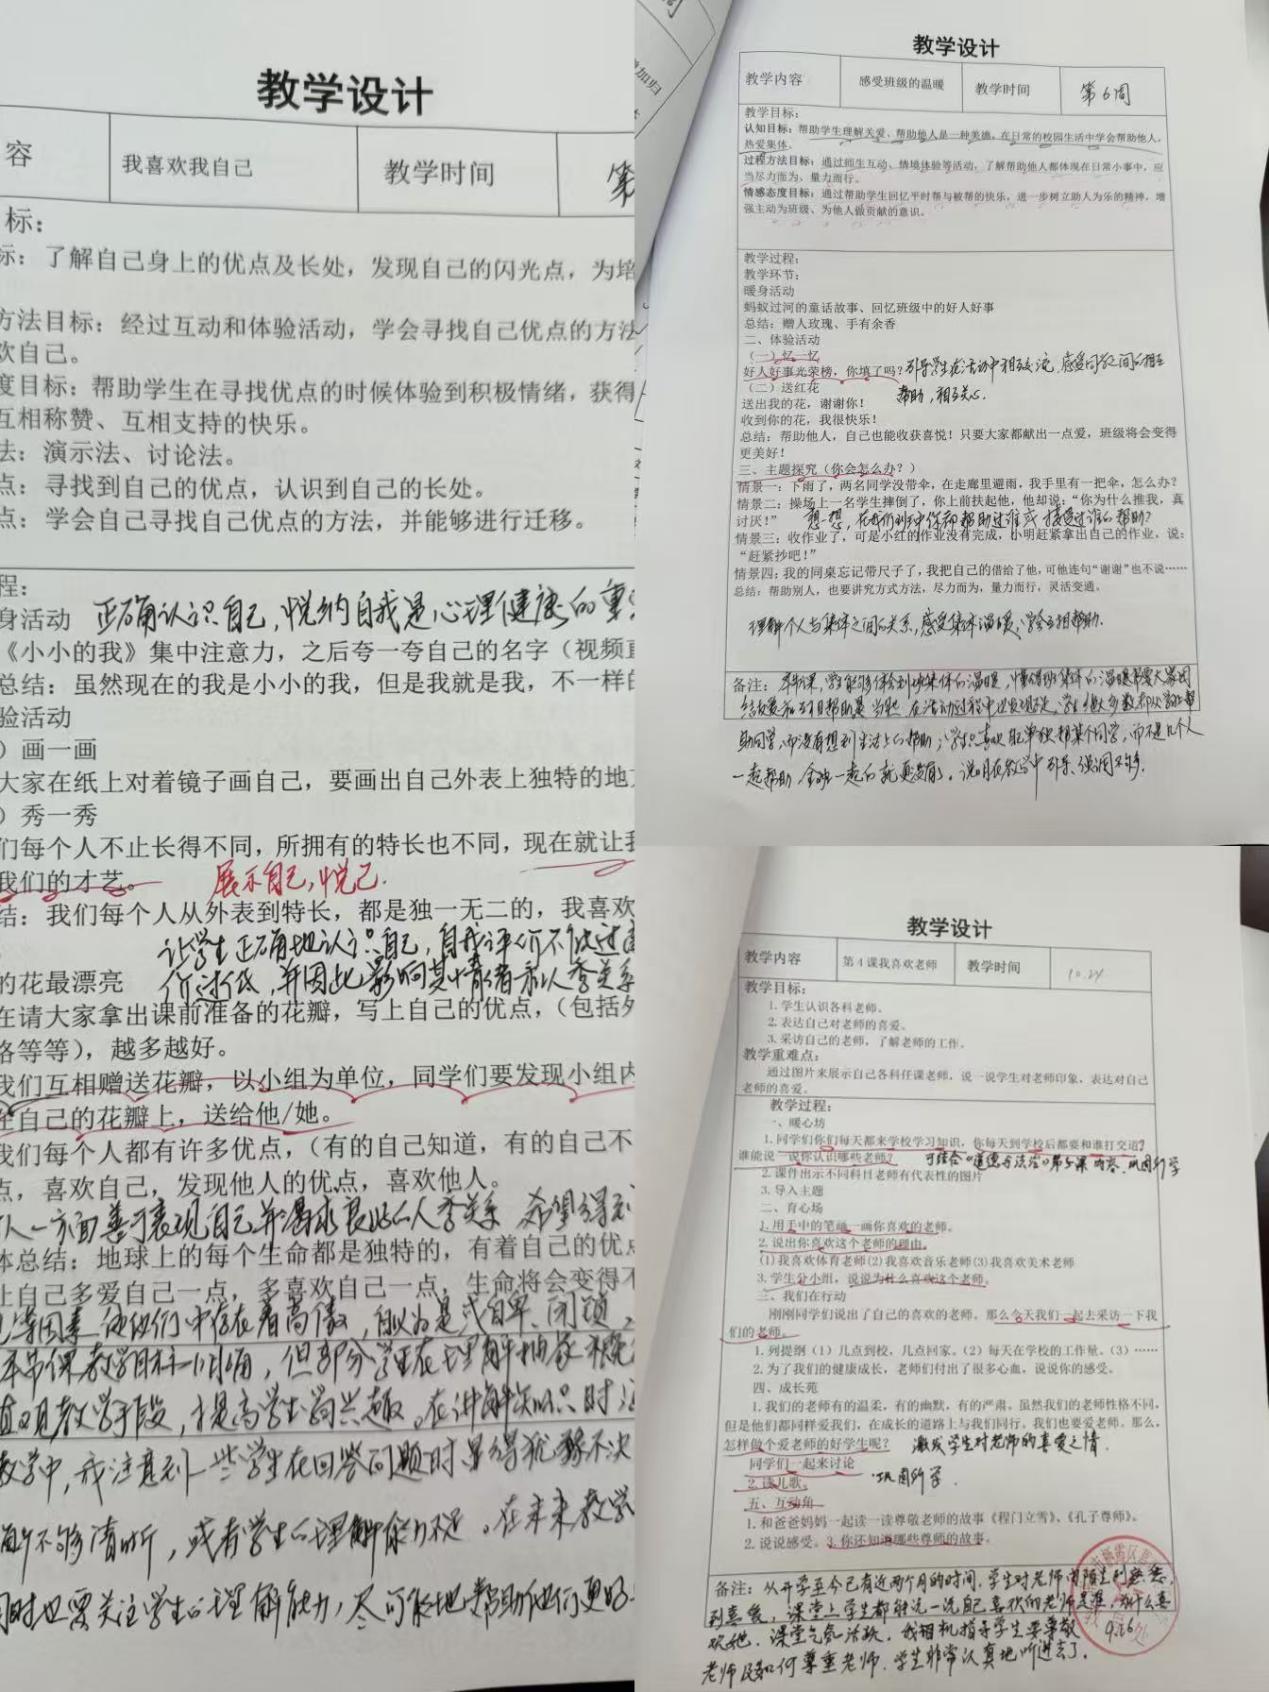 教学设计
容
我喜欢我自己
教学时间
第
标：
标：了解自己身上的优点及长处，发现自己的闪光点，为培
方法目标：经过互动和体验活动，学会寻找自己优点的方法
欢自己。
度目标：帮助学生在寻找优点的时候体验到积极情绪，获得
互相称赞、互相支持的快乐。
法：演示法、讨论法。
点：寻找到自己的优点，认识到自己的长处。
点：学会自己寻找自己优点的方法，并能够进行迁移。
程：
身活动 正确认识自己，悦纳自我是心理健康的重
《小小的我》集中注意力，之后夸一夸自己的名字（视频直
总结：虽然现在的我是小小的我，但是我就是我，不一样的
验活动
）画一画
大家在纸上对着镜子画自己，要画出自己外表上独特的地方
）秀一秀
们每个人不止长得不同，所拥有的特长也不同，现在就让我
我们的才艺。 展示自己，悦己.
结：我们每个人从外表到特长，都是独一无二的，我喜欢
让学生正确地认识自己，自我评价不能过高
的花最漂亮 价过低，并因此影响其情绪和人际关系
在请大家拿出课前准备的花瓣，写上自己的优点，（包括外
格等等），越多越好。
我们互相赠送花瓣，以小组为单位，同学们要发现小组内
在自己的花瓣上，送给他/她。
我们每个人都有许多优点，（有的自己知道，有的自己不
点，喜欢自己，发现他人的优点，喜欢他人。
人一方面善于表现自己并渴求良好的人际关系 希望得到
体总结：地球上的每个生命都是独特的，有着自己的优点
让自己多爱自己一点，多喜欢自己一点，生命将会变得不
等因素 他们中存在着高傲，自以为是或自卑、闭锁
本节课教学目标明确，但部分学生在理解抽象概念
直观教学手段，提高学生的兴趣。在讲解知识时
教学中，我注意到一些学生在回答问题时显得犹豫不决
解不够清晰，或者学生的理解能力不足。在未来教学
同时也要关注学生的理解能力，尽可能地帮助他们更好
教学设计
教学内容
感受班级的温暖
教学时间
第6周
教学目标：
认知目标：帮助学生理解关爱、帮助他人是一种美德。在日常的校园生活中学会帮助他人，
热爱集体。
过程方法目标：通过师生互动、情境体验等活动，了解帮助他人都体现在日常小事中，应
当尽力而为、量力而行。
情感态度目标：通过帮助学生回忆平时帮与被帮的快乐，进一步树立助人为乐的精神，增
强主动为班级、为他人做贡献的意识。
教学过程：
教学环节：
暖身活动
蚂蚁过河的童话故事、回忆班级中的好人好事
总结：赠人玫瑰、手有余香
二、体验活动
（一）忆一忆
好人好事光荣榜，你填了吗？引导学生在活动中相互交流，感受同学之间的相互
（二）送红花 帮助，相互关心.
送出我的花，谢谢你！
收到你的花，我很快乐！
总结：帮助他人，自己也能收获喜悦！只要大家都献出一点爱，班级将会变得
更美好！
三、主题探究（你会怎么办？）
情景一：下雨了，两名同学没带伞，在走廊里避雨，我手里有一把伞，怎么办？
情景二：操场上一名学生摔倒了，你上前扶起他，他却说：“你为什么推我，真
讨厌！” 想一想，在我们班中你都帮助过谁或接受过谁的帮助？
情景三：收作业了，可是小红的作业没有完成，小明赶紧拿出自己的作业，说：
“赶紧抄吧！”
情景四：我的同桌忘记带尺子了，我把自己的借给了他，可他连句“谢谢”也不说……
总结：帮助别人，也要讲究方式方法，尽力而为，量力而行，灵活变通。
理解个人与集体之间的关系，感受集体温暖，学会互相帮助.
备注：本课，学生能够体会到班集体的温暖，懂得班集体的温暖需要大家团
结友爱和互相帮助 在活动过程中也发现，学生绝大多数都从学习上帮
助同学，而没有想到生活上的帮助；学生只喜欢单独帮某个同学，而不是几个人
一起帮助，全班一起的就更没有了，说明在教学中引导、强调不够.
教学设计
教学内容
第4课我喜欢老师
教学时间
10.24
教学目标：
1.学生认识各科老师。
2.表达自己对老师的喜爱。
3.采访自己的老师，了解老师的工作。
教学重难点：
通过图片来展示自己各科任课老师，说一说学生对老师印象，表达对自己
老师的喜爱。
教学过程：
一、暖心坊
1.同学们你们每天都来学校学习知识，你每天到学校后都要和谁打交道？
谁能说一说你认识哪些老师？ 可结合《道德与法治》第5课内容，巩固所学
2.课件出示不同科目老师有代表性的图片
3.导入主题
二、育心场
1.用手中的笔画一画你喜欢的老师。
2.说出你喜欢这个老师的理由。
(1)我喜欢体育老师(2)我喜欢音乐老师(3)我喜欢美术老师
3.学生分小组，说说为什么喜欢这个老师。
三、我们在行动
刚刚同学们说出了自己的喜欢的老师，那么今天我们一起去采访一下我
们的老师。
1.列提纲（1）几点到校，几点回家。（2）每天在学校的工作量。（3）……
2.为了我们的健康成长，老师们付出了很多心血，说说你的感受。
四、成长苑
1.我们的老师有的温柔，有的幽默，有的严肃。虽然我们的老师性格不同，
但是他们都同样爱我们，在成长的道路上与我们同行。我们也要爱老师。那么，
怎样做个爱老师的好学生呢？ 激发学生对老师的喜爱之情
同学们一起来讨论
2.读儿歌。 巩固所学.
五、互动角
1.和爸爸妈妈一起读一读尊敬老师的故事《程门立雪》、《孔子尊师》。
2.说说感受。3.你还知道哪些尊师的故事。
备注：从开学至今已有近两个月的时间，学生对老师由陌生到熟悉，
到喜爱，课堂上学生都能说一说自己喜欢的老师是谁，为什么喜
欢她，课堂气氛活跃，我相机指导学生要尊敬
老师及如何尊重老师，学生非常认真地听进去了.